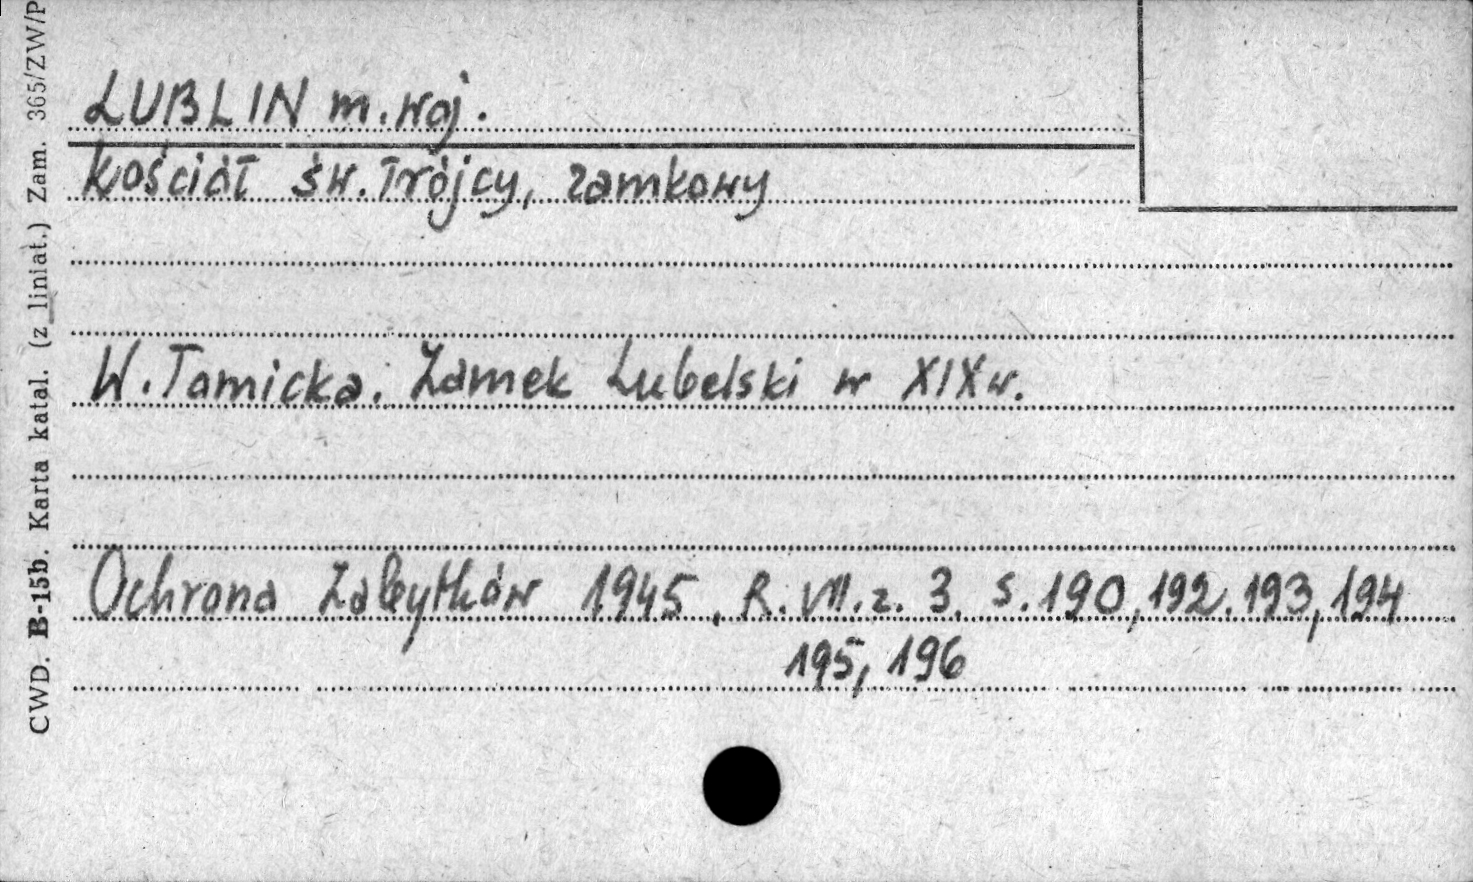 LUBLIN m. woj.
kościół św. Trójcy, zamkowy
W. Tomicka. Zamek Lubelski w XIX w.
Ochrona Zabytków 1945, R. VII. z. 3. s. 190, 192. 193, 194
195, 196
CWD. B-15b. Karta katal. (z liniat.) Zam. 365/ZW/P